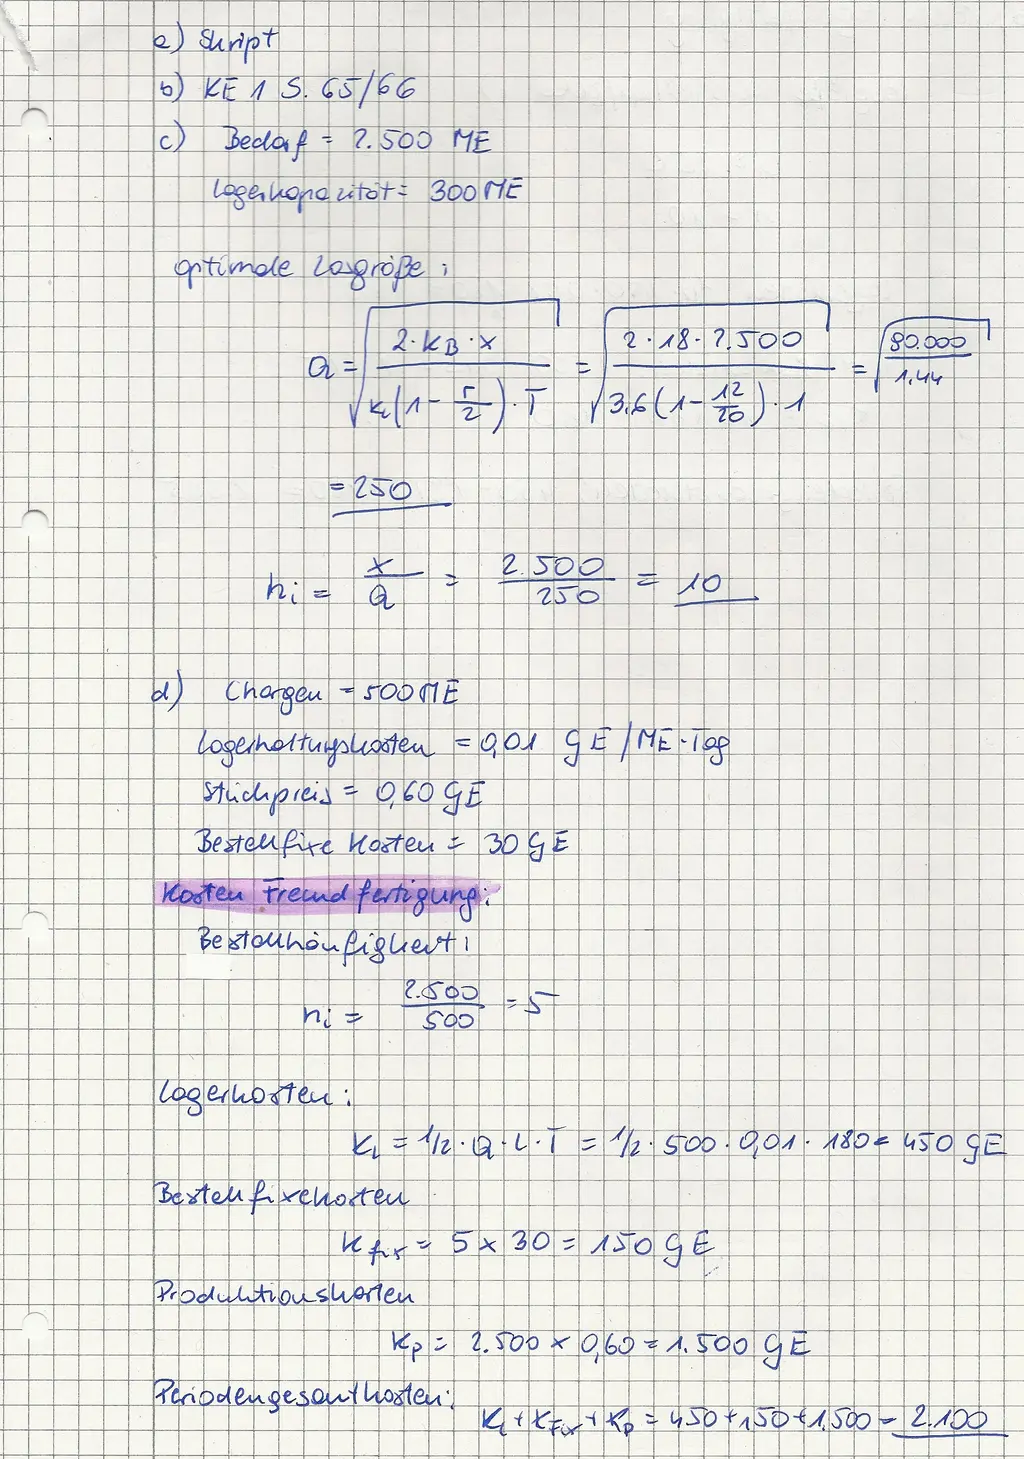 a) Skript
b) KE 1 S. 65/66
c) Bedarf = 2.500 ME
Lagerkapazität = 300 ME
optimale Losgröße:
Q = √(2·KB·x / kL(1 - r/z)·T) = √(2·18·2.500 / 3,6(1 - 12/20)·1) = √(90.000 / 1,44)
= 250
ni = x/Q = 2.500/250 = 10
d) Chargen = 500 ME
Lagerhaltungskosten = 0,01 GE/ME·Tag
Stückpreis = 0,60 GE
Bestellfixe Kosten = 30 GE
Kosten Fremdfertigung:
Bestellhäufigkeit:
ni = 2.500/500 = 5
Lagerkosten:
KL = 1/2·Q·L·T = 1/2·500·0,01·180 = 450 GE
Bestellfixekosten
Kfix = 5 x 30 = 150 GE
Produktionskosten
Kp = 2.500 x 0,60 = 1.500 GE
Periodengesamtkosten:
KL + KFix + Kp = 450 + 150 + 1.500 = 2.100